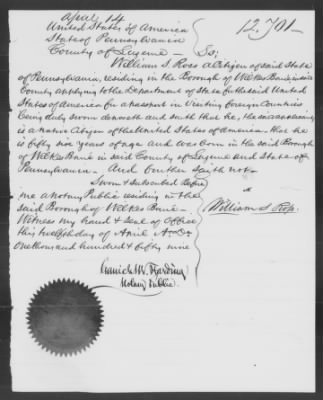 April 14
12,701
United States of America
State of Pennsylvania
County of Luzerne  Ss;
William S. Ross a Citizen of said State
of Pennsylvania, residing in the Borough of Wilkes Barre in said
County applying to the Department of State for the said United
States of America for a passport in Visiting foreign Countries
being duly sworn deposeth and saith that he, the said
is a native Citizen of the United States of America - that he
is fifty five years of age and was born in the said Borough
of Wilkes Barre in said County of Luzerne and State of
Pennsylvania - And further saith not -
Sworn & Subscribed before
me a Notary Public residing in the
said Borough of Wilkes Barre -
William S Ross
Witness my hand & seal of Office
this twelfth day of April A.D.
One thousand hundred & fifty nine
W. Harding
Notary Public